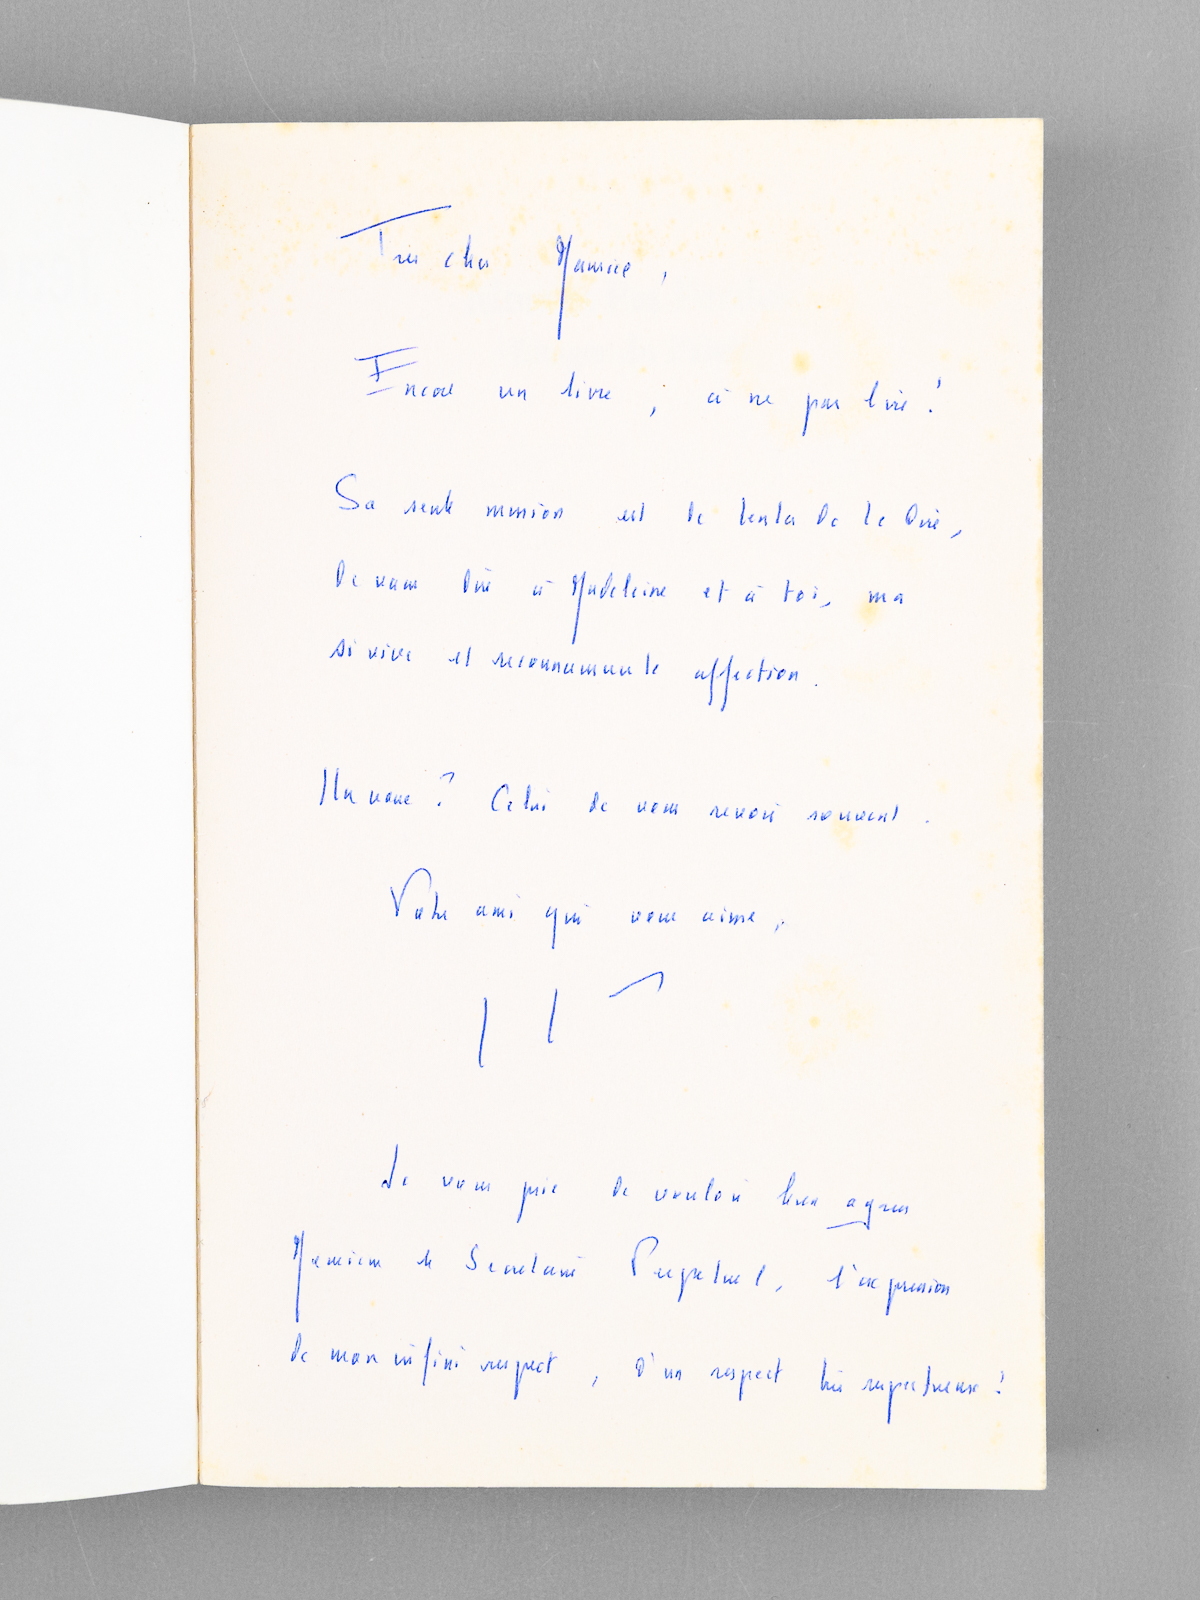 Très cher Maurice,
Encore un livre, à ne pas lire !
Sa seule mission est de tenter de te dire,
de vous dire à Madeleine et à toi, ma
si vive et reconnaissante affection.
Un vœu ? Celui de vous revoir souvent.
Votre ami qui vous aime,
Je vous prie de vouloir bien agréer
Monsieur le Secrétaire Perpétuel, l'expression
de mon infini respect, d'un respect très respectueux !